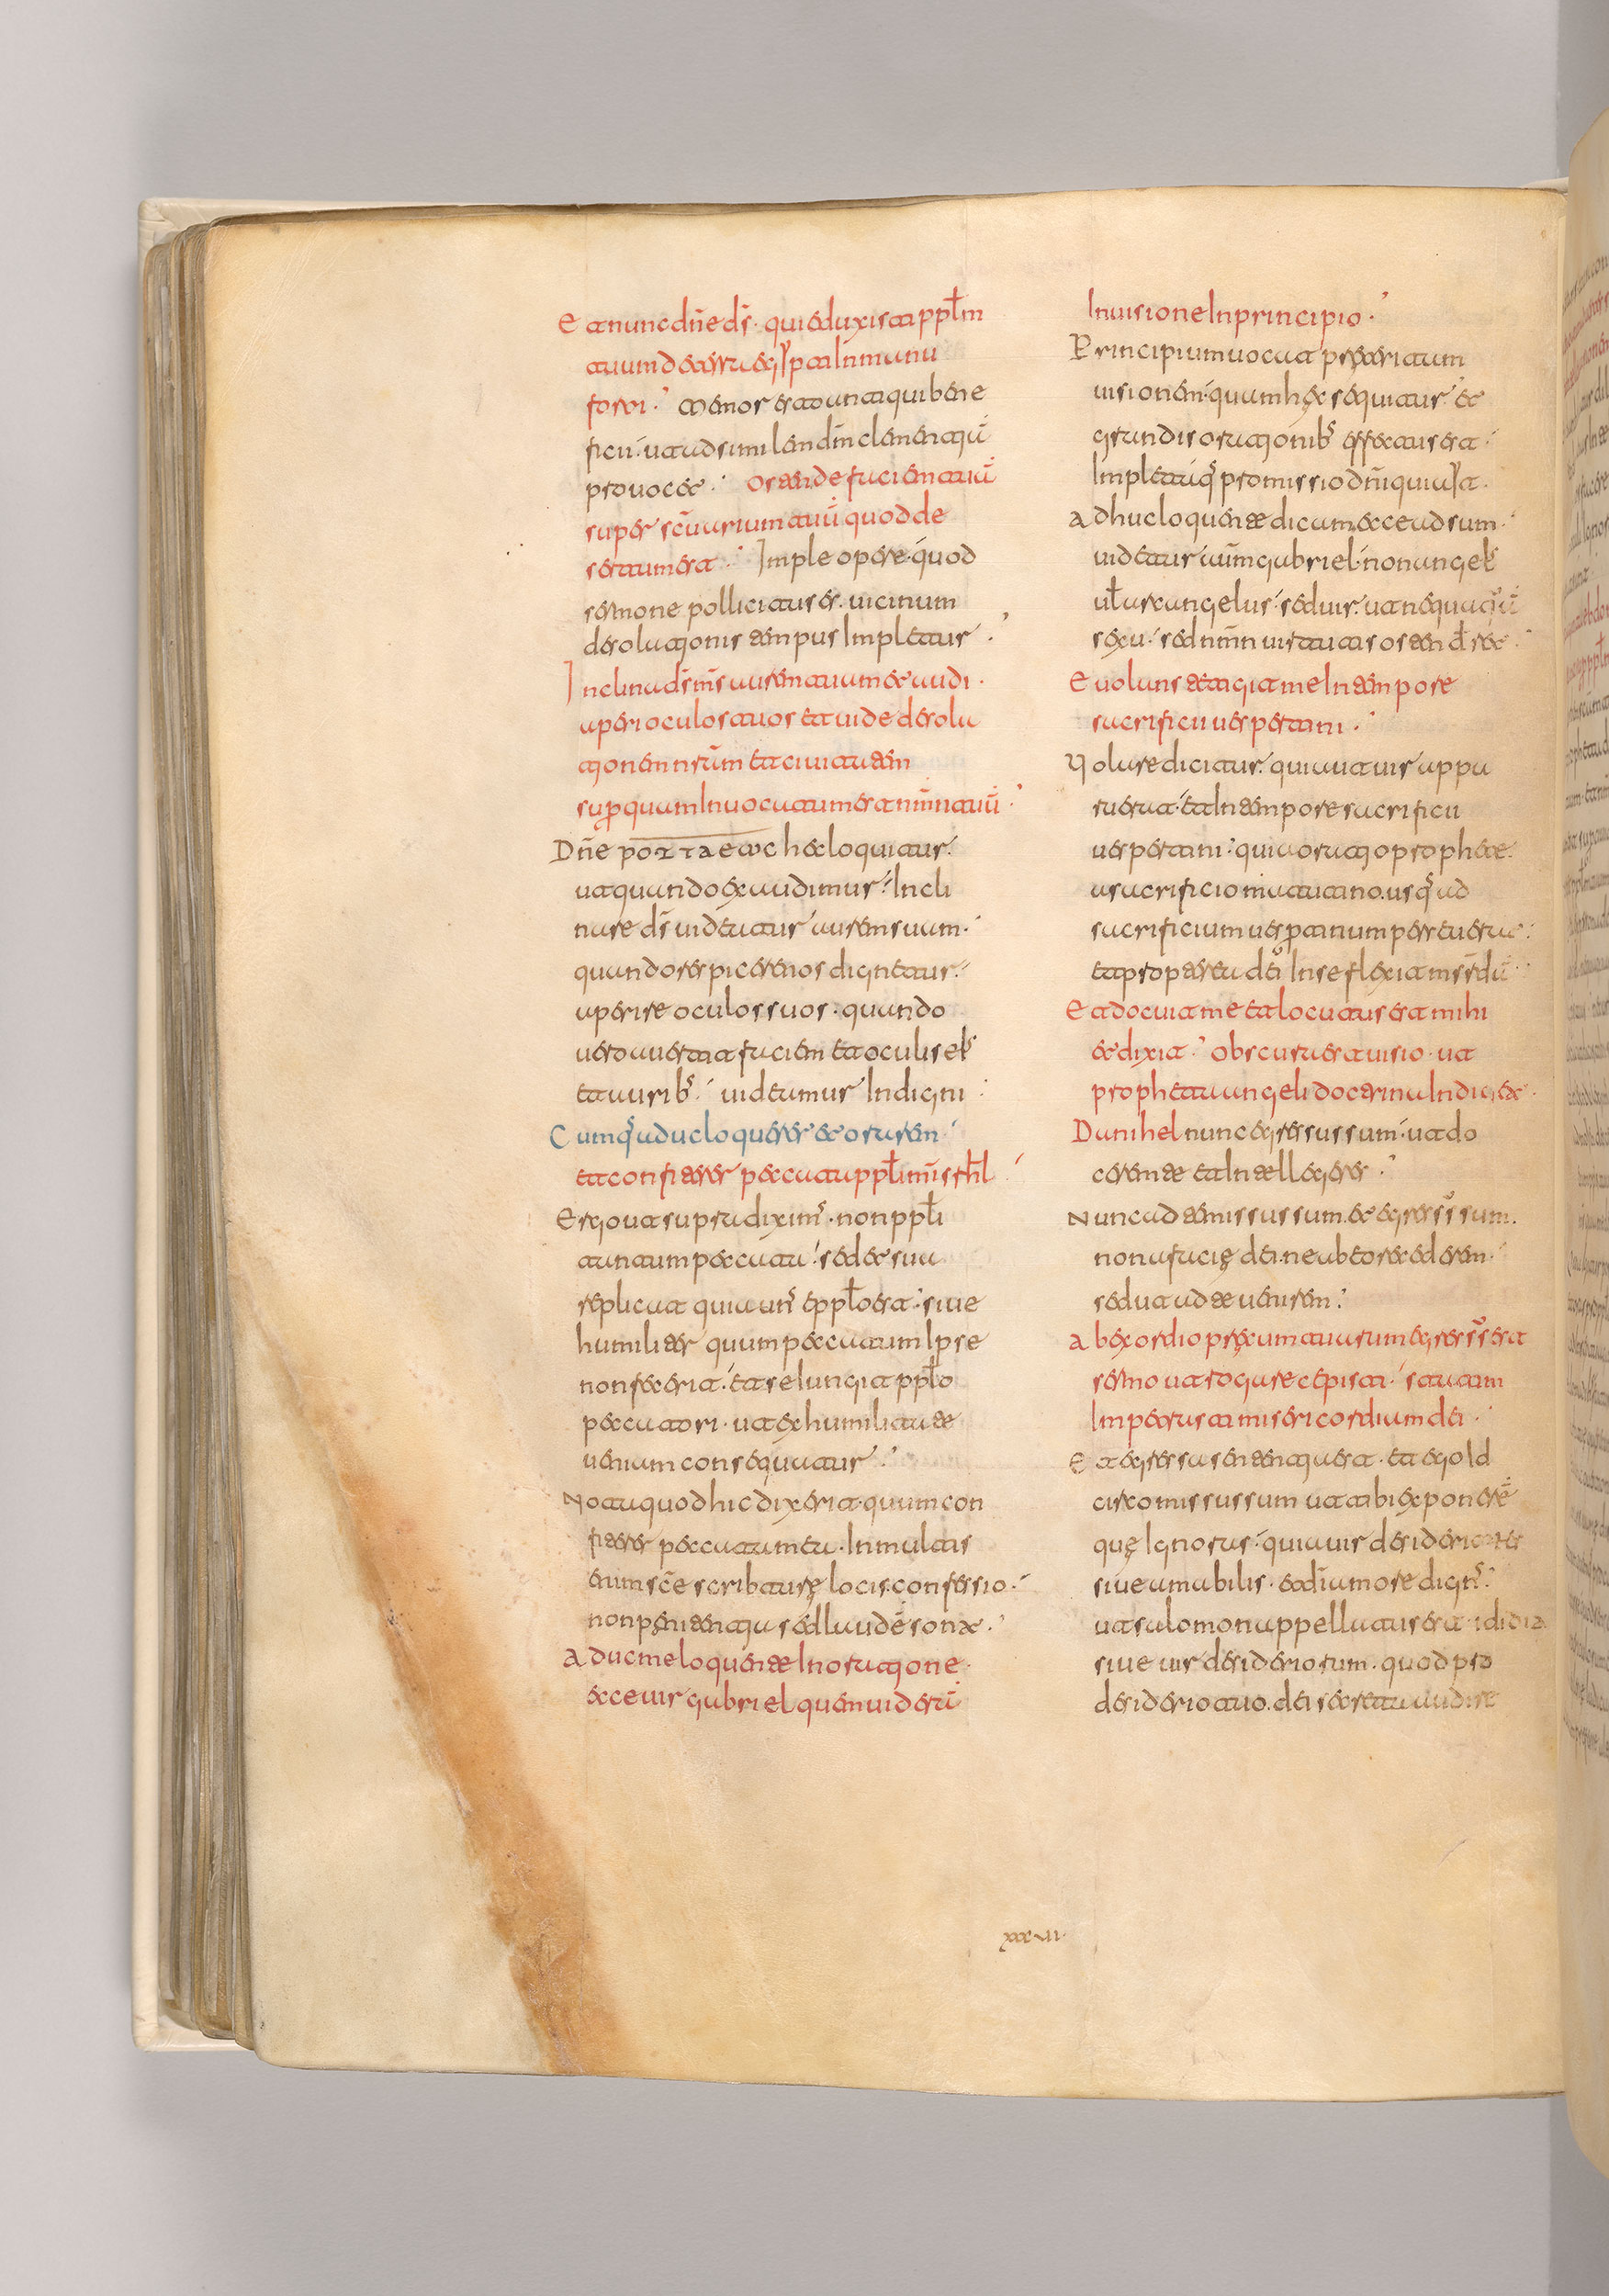 Et nunc dñe ds̄. qui eduxisti ppłm
tuum de terra egypti In manu
forti. Memor est antiqui bene
ficii. ut ad similem dm̄ clementiā
prouocet. Ostende faciem tuā
super scūarium tuū quod de
sertum est. Imple opere. quod
sermone pollicitus es. uicinum
desolationis tempus Impletur.
Inclina ds̄ ms̄ aurem tuam et audi.
aperi oculos tuos et uide desola
tionem nrām et ciuitatem
sup̱ quam Inuocatum est nm̄n tuū.
Dñe hec loquitur.
ut quando exaudimur. Incli
nare ds̄ uideatur aurem suam.
quando respicere nos dignetur.
aperire oculos suos. quando
uero auertit faciem et oculis ei
et aurib; uideamur Indigni.
Cumq; aduc loquerer et orarem.
et confiterer peccata ppłi mī srhl
Ergo ut supra diximꝰ. non ppłi
tantum peccata. sed et sua
replicat quia unꝰ e ppło est. siue
humiliter quum peccatum Ipse
non fecerit. et se Iungit ppło
peccatori. ut ex humilitate
ueniam consequatur.
Nota quod hic dixerit. quum con
fiterer peccata mea. In multis
enim scē scribturę locis. confessio.
non pęnitentia sed laudē sonat.
Aduc me loquente In oratione.
ecce uir gabriel quem uiderā
In uisione In principio.
Principium uocat pręteritam
uisionem. quum hęc sequitur. et
grandis orationibꝰ effectus est.
Impletaq; promissio dn̄i quia ÿt.
Adhuc loquente dicam ecce adsum.
uidetur autm̄ gabriel. non angeli
uł arcangelus. sed uir. ut nequaquā
sexu. sed nm̄n uirtutis ostendere
Euolans tetigit me In tempore
sacrificii uespertini.
Uolare dicitur. quia ut uir appa
ruerat. et In tempore sacrificii
uespertini. quia oratio prophete.
a sacrificio matutino. usq; ad
sacrificium uesp̱tinum perseuerat.
et propterea dei In se flexit msr̄dā.
Et docuit me et locutus est mihi
et dixit. Obscura est uisio. ut
propheta angeli doctrina Indiget.
Danihel nunc egressus sum. ut do
cerem te et Intellegeres.
Nunc ad te missus sum. et egressꝰ sum.
non a facię dei. ne ab eo recederem.
sed ut ad te uenirem.
Ab exordio pręcum tuarum egressꝰ est
sermo ut rogare cepisti. statim
Impetrasti misericordiam dei.
Et egressus en sententia est. et ego Id
circo missus sum ut tibi exponerē
quę Ignoras. quia uir desideriorum es
siue amabilis. et dī amore dignꝰ.
ut salomon appellatus est. ididia
siue uir desideriorum. quod pro
desiderio tuo. dei secreta audire
xxxvii